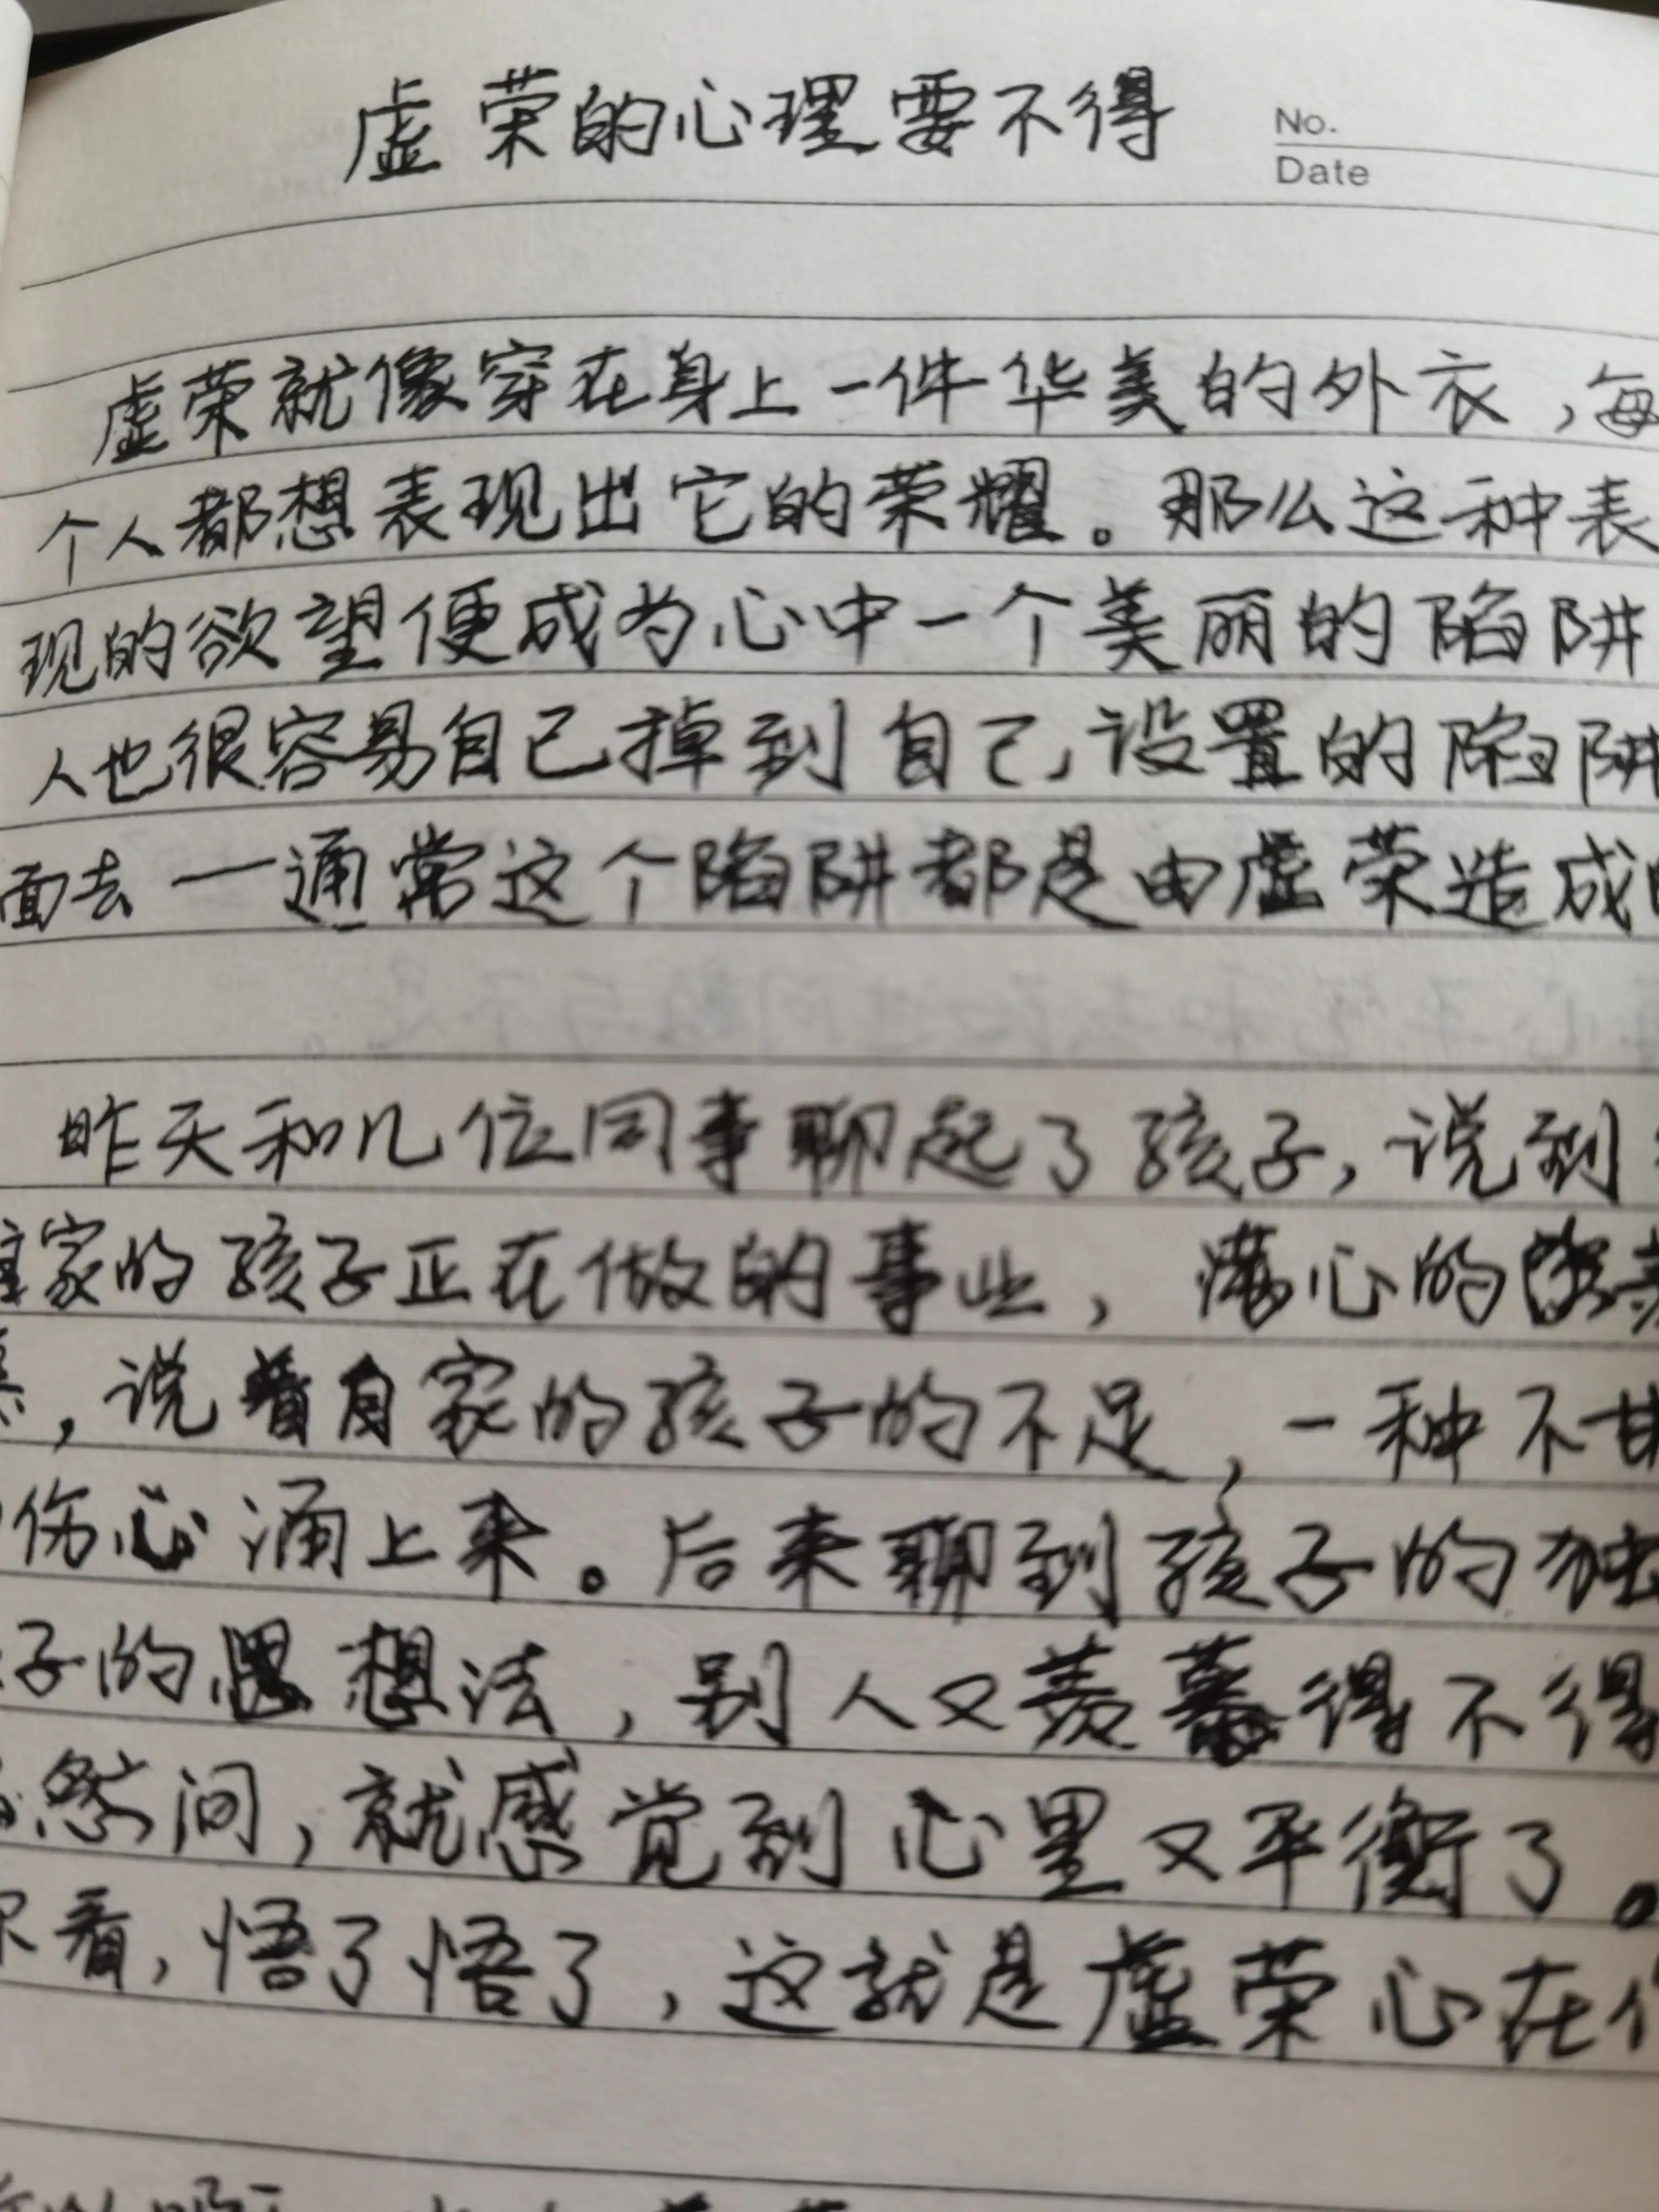 虚荣的心理要不得
No.
Date
虚荣就像穿在身上一件华美的外衣，每
个人都想表现出它的荣耀。那么这种表
现的欲望便成为心中一个美丽的陷阱
人也很容易自己掉到自己设置的陷阱
面去一通常这个陷阱都是由虚荣造成
昨天和几位同事聊起了孩子，说到
家的孩子正在做的事业，满心的
，说着自家的孩子的不足，一种不甘
伤心涌上来。后来聊到孩子的独
子的思想法，别人又羡慕得不得
然间，就感觉到心里又平衡了。
看，悟了悟了，这就是虚荣心在